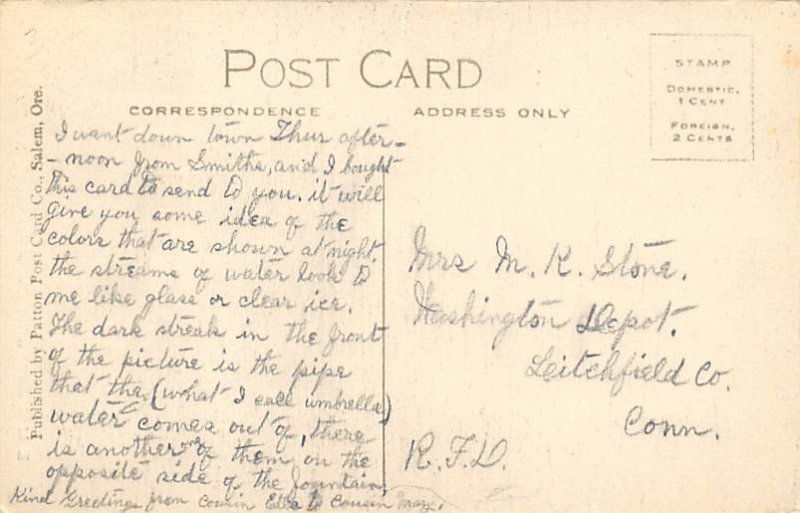 POST CARD
CORRESPONDENCE
ADDRESS ONLY
STAMP
DOMESTIC,
1 CENT
FOREIGN,
2 CENTS
Published by Patton Post Card Co., Salem, Ore.
I want down town Thur after-
-noon from Smiths, and I bought
this card to send to you. it will
Give you some idea of the
colors that are shown at night.
the streams of water look to
me like glass or clear ice.
The dark streak in the front
of the picture is the pipe
that the (what I call umbrella)
water comes out of, there
is another one of them on the
opposite side of the fountain,
Kind Greetings from Cousin to Cousin May.
Mrs M. K. Stone.
Washington Depot.
Leitchfield Co.
Conn.
R.F.D.